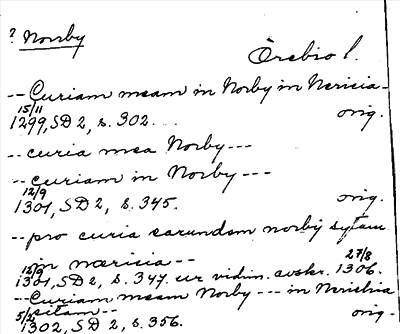 ? Norrby
Örebro l.
-- Curiam meam in Norby in Nericia -
15/11
1299, SD 2, s. 302. .. orig.
-- curia mea Norby ---
-- curiam in Norby ---
12/9
1301, SD 2, s. 345. orig.
-- pro curia earundem norby sytam
in næricia --
12/9 27/8
1301, SD 2, s. 347. ur vidim. avskr. 1306.
-- Curiam meam Norby --- in Nerichia
sitam --
5/2
1302, SD 2, s. 356. orig.